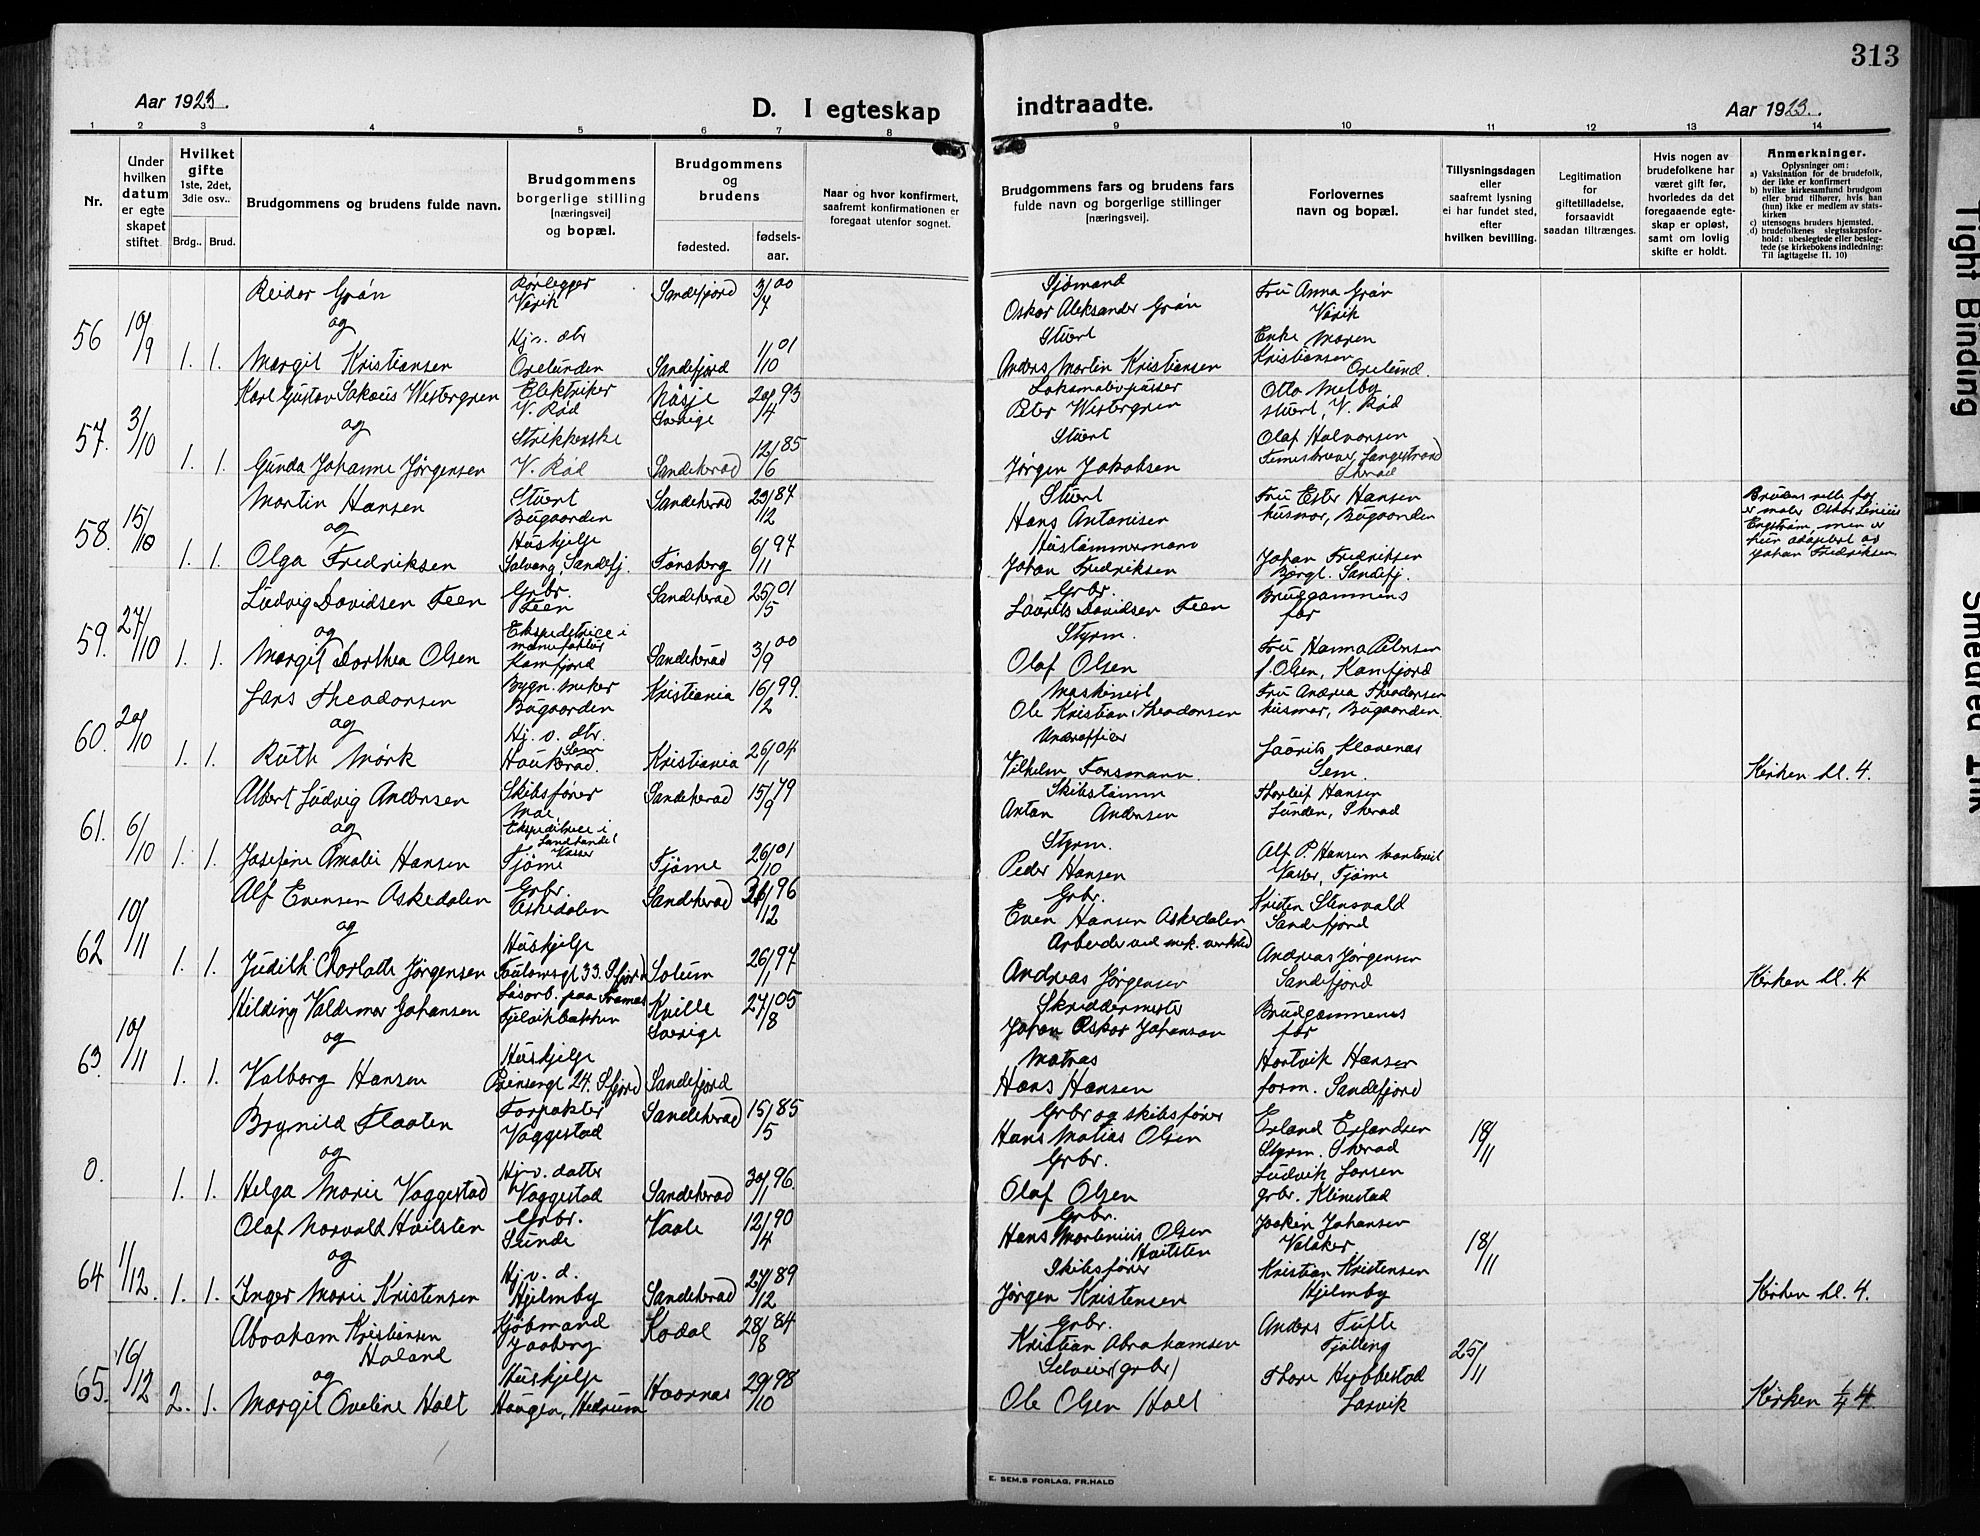 313
Aar 1923.
D. I egteskap
indtraadte.
Aar 1923.
1 2 3 4 5 6 7 8 9 10 11 12 13 14
Nr.
Under
hvilken
datum
er egte
skapet
stiftet
Hvilket
gifte
1ste, 2det,
3die osv..
Brdg..
Brud.
Brudgommens og brudens fulde navn.
Brudgommens
borgerlige stilling
[næringsvei]
og bopæl.
Brudgommens
og
brudens
fødested.
fødsels-
aar.
Naar og hvor konfirmert,
saafremt konfirmationen er
foregaat utenfor sognet.
Brudgommens fars og brudens fars
fulde navn og borgerlige stillinger
[næringsvei].
Forlovernes
navn og bopæl.
Tillysningsdagen
eller
saafremt lysning
ei har fundet sted,
efter
hvilken bevilling.
Legitimation
for
giftetilladelse,
forsaavidt
saadan tiltrænges.
Hvis nogen av
brudefolkene har
været gift før,
hvorledes da det
foregaaende egte-
skap er opløst,
samt om lovlig
skifte er holdt.
Anmerkninger.
Oplysninger om:
a) Vaksination for de brudefolk,
der ikke er konfirmert
b) hvilke kirkesamfund brudgom
eller brud tilhører, hvis han
(hun) ikke er medlem av stats-
kirken
c) utensogns bruders hjemsted.
d) brudefolkenes slegtsskapsfor-
hold: ubeslegtede eller besleg-
tede (se kirkebokens indledning:
Til iagttagelse II. 10)
56 10/9 1. 1.
Reidar Grøn
og
Margit Kristiansen
Rørlegger
Virik
Hj.v. dtr
Oxelunden
Sandefjord 3/7 00
Sandefjord 1/10 01
Sjømand
Oskar Aleksander Grøn
Stuert
Anders Martin Kristiansen
Fru Anna Grøn
Virik
Enke Maren
Kristiansen
Oxelund.
57. 3/10 1. 1.
Karl Gustav Sakæus Westergren
og
Gunda Johanne Jørgensen
Elektriker
V. Rød
Strikkerske
V. Rød
Näsje
Sverige 20/4 93
Sandeherad 12/6 85
Lokomotivpusser
Peter Westergren
Stuert
Jørgen Jakobsen
Otto Melby
stuert, V. Rød
Olaf Halvorsen
Langestrand
Sherad
58. 15/10 1. 1.
Martin Hansen
og
Olga Fredriksen
Stuert
Bugaarden
Hushjelp
Solvang, Sandefj.
Sandeherad 23/12 87
Tønsberg 6/11 97
Stuert
Hans Antonisen
Hustømmermand
Johan Fredriksen
Fru Ester Hansen
husmor, Bugaarden
Johan Fredriksen
Bjergt. Sandefj.
Brudens rette far
er maler Oskar Linius
Engstrøm, men er
hun adoptert av
Johan Fredriksen
59. 27/10 1. 1.
Ludvig Davidsen Feen
og
Margit Dorthea Olsen
Grbr.
Feen
Ekspeditrice i
manufaktur
Kamfjord
Sandeherad 25/5 01
Sandeherad 3/9 00
Grbr.
Laurits Davidsen Feen
Styrm.
Olaf Olsen
Brudgommens
far
Fru Hanna Petersen
f. Olsen, Kamfjord
60. 20/10 1. 1.
Lars Theodorsen
og
Ruth Mørk
Bygn. sneker
Bugaarden
Hj. v. dtr.
Haukerød. Sem
Kristiania 16/2 99.
Kristiania 26/11 04
Maskinist
Ole Kristian Theodorsen
Underofficer
Vilhelm Forsmann.
Fru Andrea Theodorsen
husmor, Bugaarden.
Laurits Klavenæs
Sem.
Kirken kl. 4.
61. 6/10 1. 1.
Albert Ludvig Andersen
og
Josefine Amalie Hansen
Skibsfører
Moe
Ekspeditrice i
Landhandel
Vasser
Tjøme
Sandeherad 15/9 79
Tjøme 26/10 01
Skibstømm
Anton Andersen
Styrm.
Peder Hansen
Thorleif Hansen
Lunden, Sherad
Alf P. Hansen
Vasser, Tjøme
62 10/11 1. 1.
Alf Evensen Askedalen
og
Judith Charlotte Jørgensen
Grbr.
Askedalen
Hushjelp
33. Sfjord
Sandeherad 26/12 96
Solum 26/1 97
Grbr.
Even Hansen Askedalen
Arbeider ved mek. verksted
Andreas Jørgensen
Kristen Stensvald
Sandefjord
Andreas Jørgensen
Sandefjord
Kirken kl. 4
63. 10/11 1. 1.
Hilding Valdemar Johansen
og
Valborg Hansen
Løsarb. paa Framnæs
Fjelvikbakken
Hushjelp
Prinsensgt 24. Sfjord
Kville
Sverige 27/8 05
Sandefjord
Skreddermester
Johan Oskar Johanson
Matros
Hans Hansen
Brudgommens
far
Hartvik Hansen
form. Sandefjord
0. 1. 1.
Brynild Flaaten
og
Helga Marie Vaggestad
Forpakter
Vaggestad
Hj.v. datter
Vaggestad
Sandeherad 15/5 85
Sandeherad 30/1 96.
Grbr og skibsfører
Hans Matias Olsen
Grbr.
Olaf Olsen
Erland Erlandsen
Styrm. Sherad
Ludvik Larsen
grbr. Klinestad
18/11
64 1/12. 1. 1.
Olaf Norvald Hvitsten
og
Inger Marie Kristensen
Grbr.
Sunde
Hj. v. d.
Hjelmby
Vaale 12/4 90
Sandeherad 27/12 89
Grbr.
Hans Martenius Olsen
Hvitsten
Skibsfører
Jørgen Kristensen
Joakim Johansen
Valaker
Kristian Kristensen
Hjelmby
18/11
Kirken kl. 4.
65. 16/12 2. 1.
Abraham Kristiansen
Haland
og
Margit Oveline Holt
Kjøbmand
Gaaberg
Hushjelp
Haugen, Hedrum
Kodal 28/8 84
Hvarnes 29/10 98
Grbr.
Kristian Abrahamsen
Selveier (grbr)
Ole Olsen Holt
Anders Tufte
Tjølling
Thore Hybbestad
Larvik
25/11
Kirken 4
E. SEM,S FORLAG, FR.HALD
Tight Binding
Smeared Ink